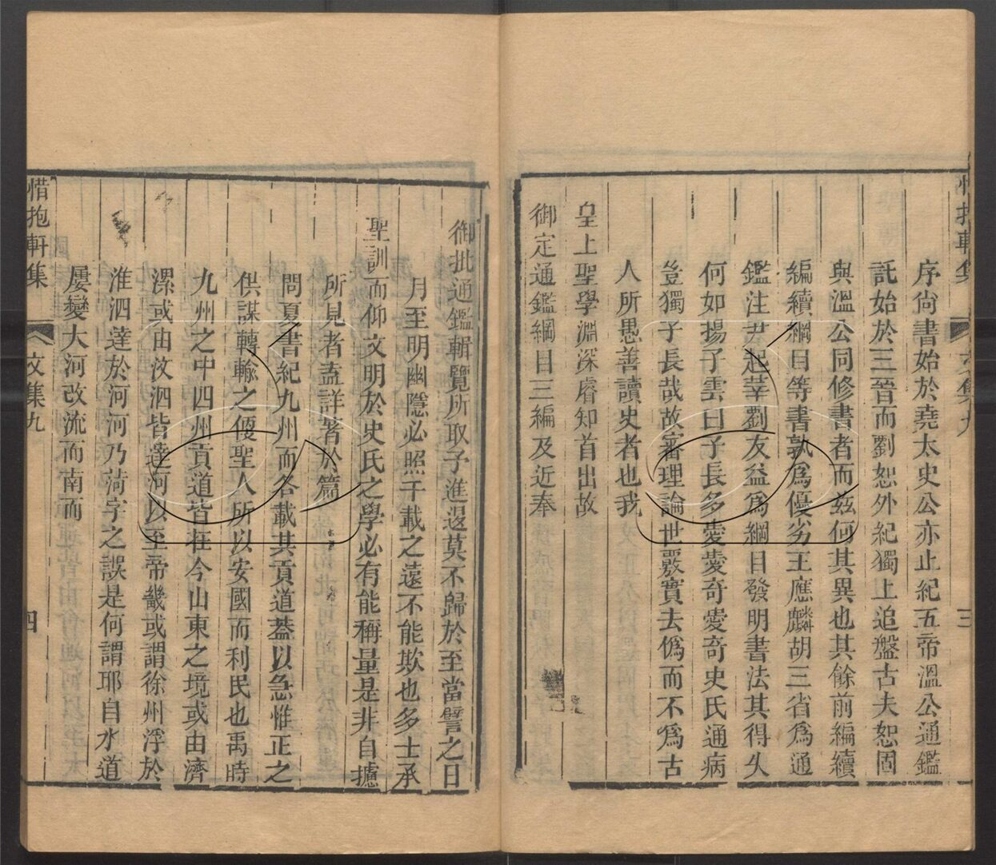 序尚書始於堯太史公亦止紀五帝溫公通鑑
託始於三晉而劉恕外紀獨上追盤古夫恕固
與溫公同修書者而茲何其異也其餘前編續
編續綱目等書孰爲優劣王應麟胡三省爲通
鑑注尹起莘劉友益爲綱目發明書法其得失
何如揚子雲曰子長多愛愛奇愛奇史氏通病
豈獨子長哉故審理論世覈實去僞而不爲古
人所愚善讀史者也我
皇上聖學淵深睿知首出故
御定通鑑綱目三編及近奉
三
御批通鑑輯覽所取予進退莫不歸於至當譬之日
月至明幽隱必照千載之遠不能欺也多士承
聖訓而仰文明於史氏之學必有能稱量是非自攄
所見者盍詳著於篇
問夏書紀九州而各載其貢道蓋以急惟正之
供謀轉輸之便聖人所以安國而利民也禹時
九州之中四州貢道皆在今山東之境或由濟
漯或由汶泗皆達河以至帝畿或謂徐州浮於
淮泗達於河河乃菏字之誤是何謂耶自水道
屢變大河改流而南而
惜抱軒集 文集九 四